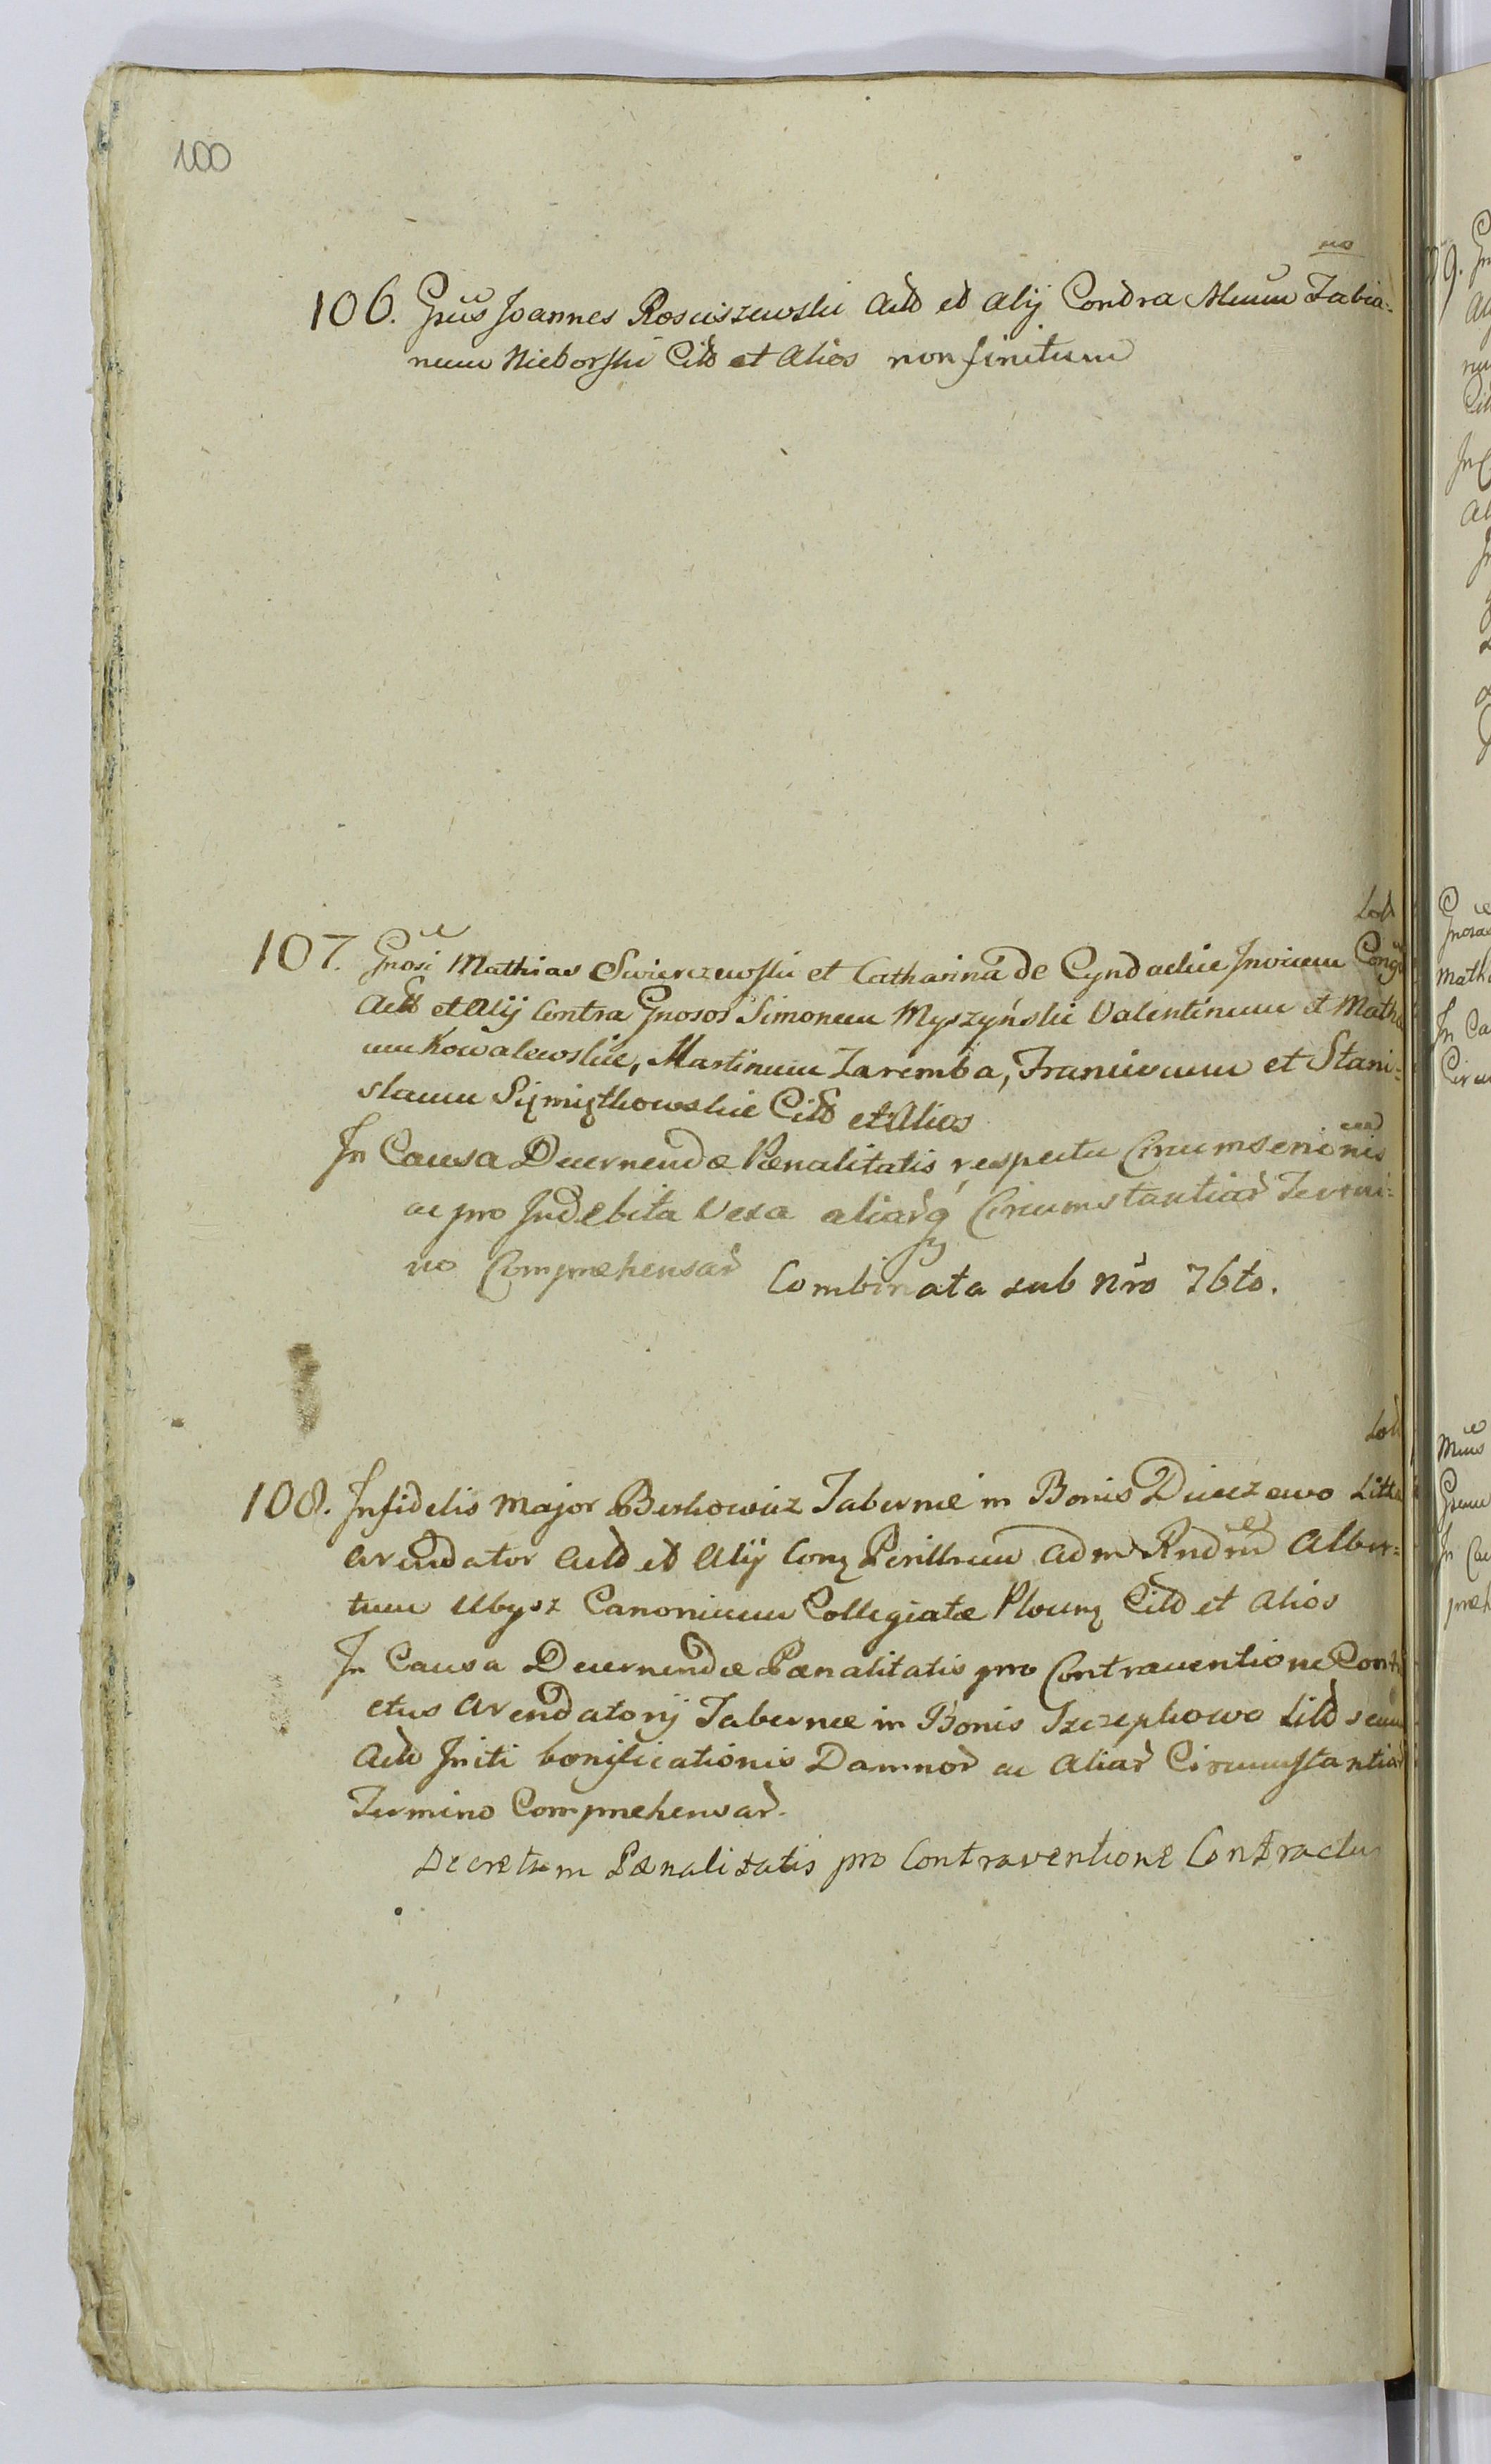 100
no
106. Gnus Joannes Rosciszewski Actt et alij Contra Mcum Fabia-
num Nieborski Citt et Alios non finitum
107. Gnosi Mathias Swierczewski et Catharina de Cyndackie Invicem Congs
Actt et Alij Contra Gnosos Simonem Myszyński Valentinum et Mathe
um Kowalewskie, Martinum Zaremba, Franciscum et Stani-
slaum Siemiętkowskie Citt et Alios
In Causa Decernendæ Pænalitatis respectu
ac pro Indebita Vexa aliarq Circumstantiar Termi-
no Comprehensar Combinata sub Nro 76to.
108. Infidelis Major Berkowicz Tabernæ in Bonis Litte
arendator Actt et Alij Conq Perillrem Adm Rndm Alber-
tum Ubysz Canonicum Collegiatæ Plocenq Citt et Alios
In Causa Decernendæ Pænalitatis pro Contraventione Contr
ctus Arendatorij Tabernæ in Bonis Szczepkowo Litt secum
Actt Initi bonificationis Damnor ac Aliar Circumstantiar
Termino Comprehensar.
Decretum Pænalitatis pro Contraventione Contractus